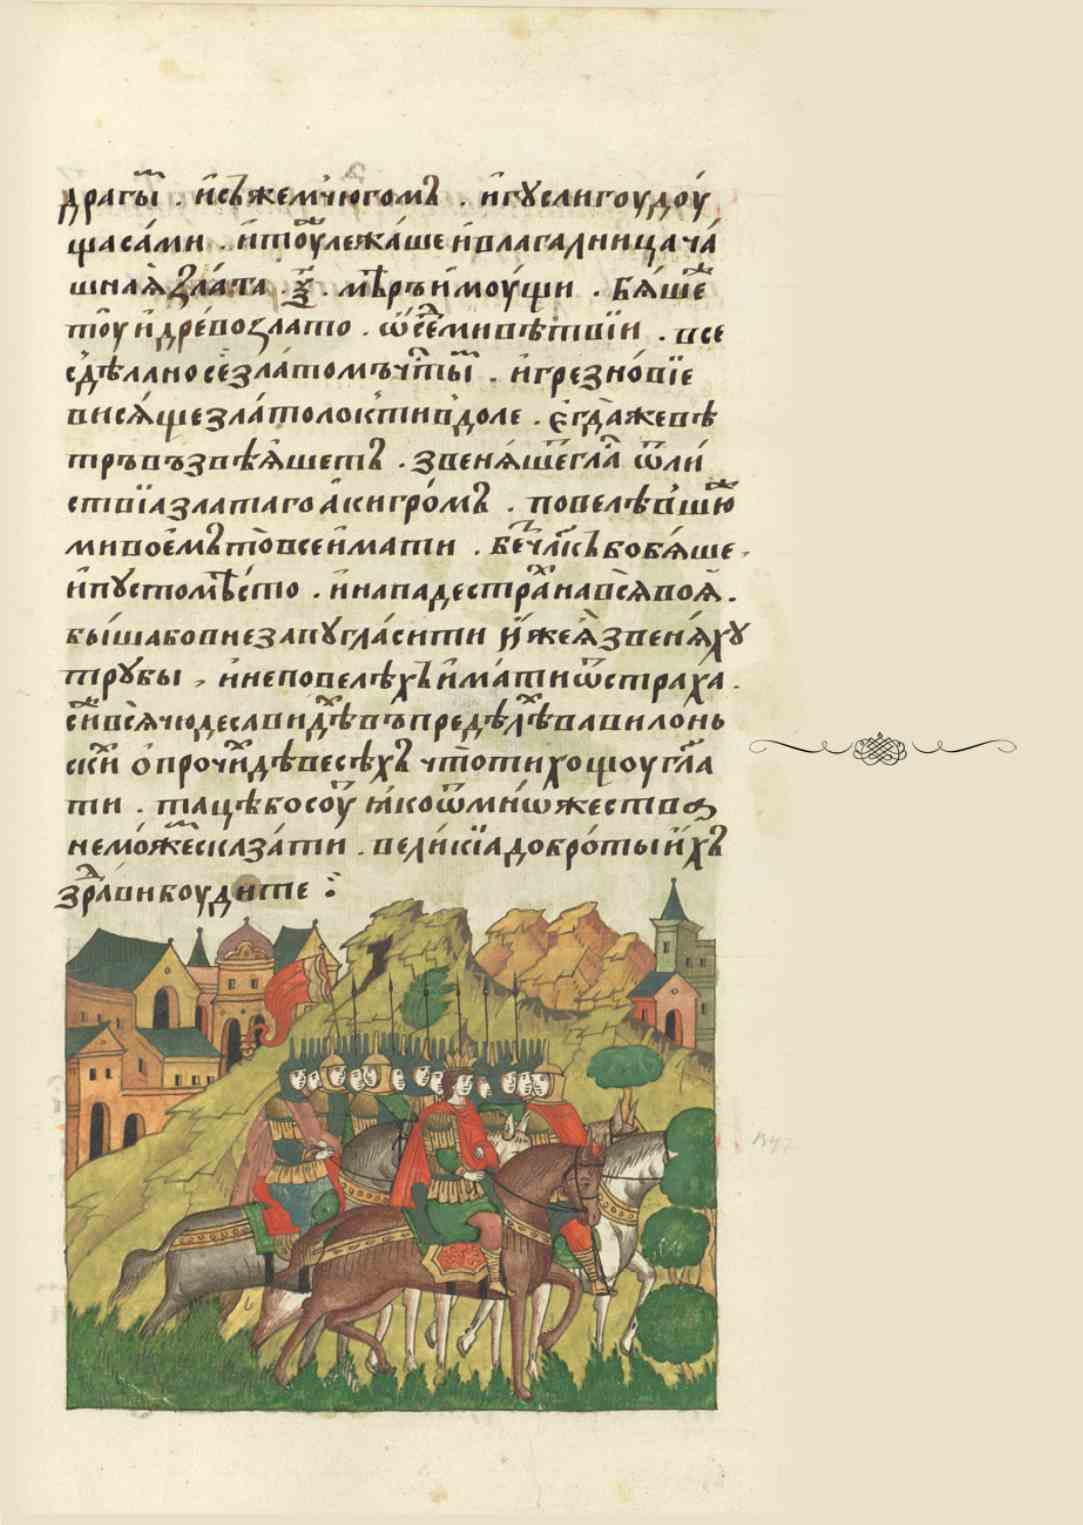 драгы҃ми . и҆съжемчюгомъ . и҆гꙋслигоудоу́
щаса́ми . и҆тоу҆лежа́ше и҆влагалницача́
шнаꙗ҆зла́та . ꙁ҃ . мѣръи҆моу́щи . бѧ́шеⷤ
тоу̀ и҆дре́возлато . ѿсеⷣмивѣтвїи . все
сдѣланосе́златомъчⷭ҇тыⷨ . и҆грезно́вїе
висѧ́щезла́толоктивдоле . є҆гда̀жевѣ
тръвъзвѣѧ҆шетъ . звенѧ́шеⷭ҇глаⷭ҇ ѿли́
ствїазлатаго а҆кигро́мъ . повелѣвшюⷤ
мивое́мъто̀всеи҆мати . беⷥчлⷦ҇ъбобѧ́ше .
и҆пꙋстомѣ́сто . и҆нападестраⷯнавсѧ̀воѧ̀ .
бы́шабовнезапꙋгла́сити и҆́жеѧ҆̀звенѧ́хꙋ
трꙋбы , и҆неповелѣхъи҆ма́тиѿстраха .
сиⷤ҇всѧ̀чюдесавидⷯѣвъпредѣлⷯѣвавилонь
скиⷯ о҆прочиⷯдѣвесѣхъ что̀тихощюуглаⷭ҇
ти . тацѣбосоуⷮ ꙗ҆коѿмно́жества
немо́жеⷨсказа́ти . вели́кїадобро́тыи҆́хъ
здраⷡ҇вибоудите :